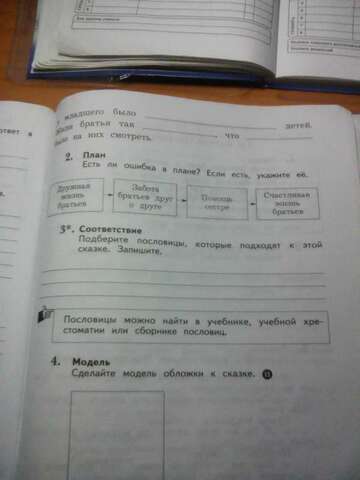 младшего было детей.
братья так что
на них смотреть.
2. План
Есть ли ошибка в плане? Если есть, укажите её.
Дружная жизнь братьев
Забота братьев друг о друге
Помощь сестре
Счастливая жизнь братьев
3*. Соответствие
Подберите пословицы, которые подходят к этой
сказке. Запишите.
Пословицы можно найти в учебнике, учебной хре-
стоматии или сборнике пословиц.
4. Модель
Сделайте модель обложки к сказке.